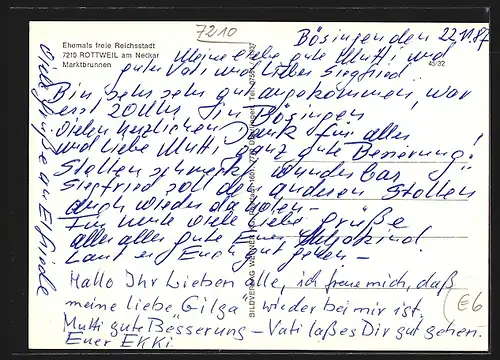 7210
Ehemals freie Reichsstadt
7210 ROTTWEIL am Neckar
Marktbrunnen
45/32
Bösingen den 22.11.87
Meine liebe gute Mutti und
guter Vati und lieber Siegfried!
Bin sehr sehr gut angekommen, war
erst 20 Uhr in Bösingen
vielen herzlichen Dank für alles!
und liebe Mutti ganz gute Besserung!
Stollen schmeckt wunderbar
Siegfried soll den anderen Stollen
auch wieder da holen-
Für heute viele liebe Grüße
alles alles gute Euer
Laßt es Euch gut gehen-
Viele Grüße an Elfriede
Hallo Ihr Lieben alle, ich freue mich, daß
meine liebe "Gilga" wieder bei mir ist.
Mutti gute Besserung - Vati laß es Dir gut gehen.
Euer EKKi
E6
BILDVERLAG WERNER